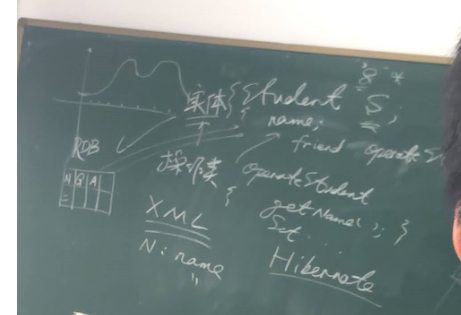 实体 { Student S;
{ name;
friend operateS
RDB
操作类 operateStudent
N G A
{ getName(); }
XML
Set...
N: name
Hibernate